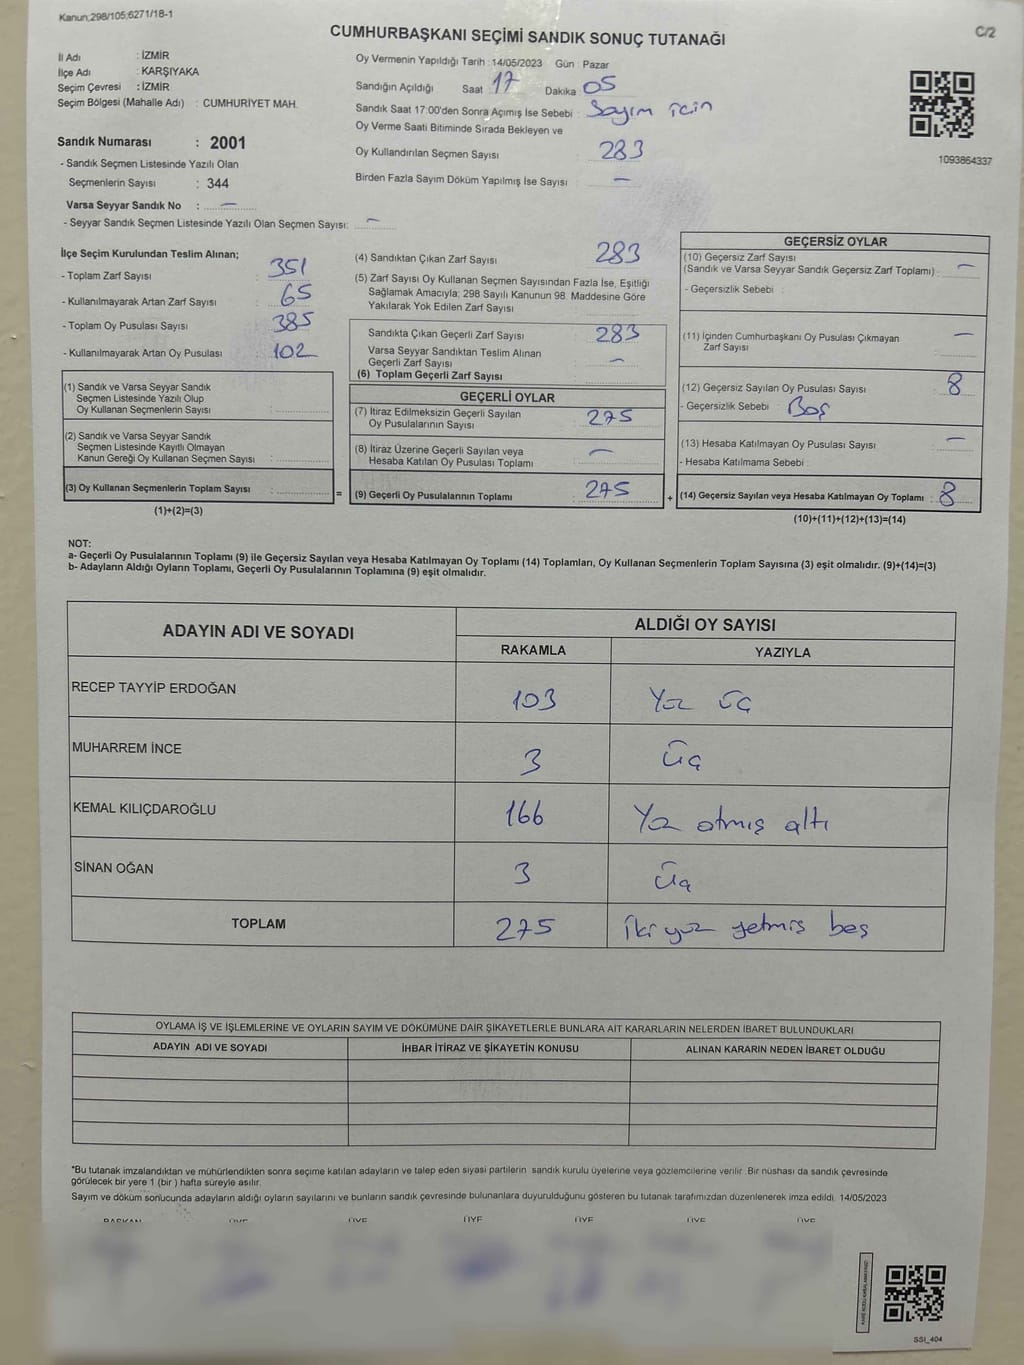 Kanun;298/105;6271/18-1
C/2
CUMHURBAŞKANI SEÇİMİ SANDIK SONUÇ TUTANAĞI
İl Adı : İZMİR
İlçe Adı : KARŞIYAKA
Seçim Çevresi : İZMİR
Seçim Bölgesi (Mahalle Adı) : CUMHURİYET MAH.
Sandık Numarası : 2001
- Sandık Seçmen Listesinde Yazılı Olan
Seçmenlerin Sayısı : 344
Varsa Seyyar Sandık No : —
- Seyyar Sandık Seçmen Listesinde Yazılı Olan Seçmen Sayısı: —
Oy Vermenin Yapıldığı Tarih : 14/05/2023 Gün : Pazar
Sandığın Açıldığı Saat 17 Dakika 05
Sandık Saat 17:00'den Sonra Açımış İse Sebebi : Sayım için
Oy Verme Saati Bitiminde Sırada Bekleyen ve
Oy Kullandırılan Seçmen Sayısı 283
Birden Fazla Sayım Döküm Yapılmış İse Sayısı : —
1093864337
İlçe Seçim Kurulundan Teslim Alınan;
- Toplam Zarf Sayısı : 351
- Kullanılmayarak Artan Zarf Sayısı : 65
- Toplam Oy Pusulası Sayısı : 385
- Kullanılmayarak Artan Oy Pusulası : 102
(1) Sandık ve Varsa Seyyar Sandık
Seçmen Listesinde Yazılı Olup
Oy Kullanan Seçmenlerin Sayısı :
(2) Sandık ve Varsa Seyyar Sandık
Seçmen Listesinde Kayıtlı Olmayan
Kanun Gereği Oy Kullanan Seçmen Sayısı :
(3) Oy Kullanan Seçmenlerin Toplam Sayısı : =
(1)+(2)=(3)
(4) Sandıktan Çıkan Zarf Sayısı : 283
(5) Zarf Sayısı Oy Kullanan Seçmen Sayısından Fazla İse, Eşitliği
Sağlamak Amacıyla; 298 Sayılı Kanunun 98. Maddesine Göre
Yakılarak Yok Edilen Zarf Sayısı :
Sandıkta Çıkan Geçerli Zarf Sayısı : 283
Varsa Seyyar Sandıktan Teslim Alınan
Geçerli Zarf Sayısı : —
(6) Toplam Geçerli Zarf Sayısı :
GEÇERLİ OYLAR
(7) İtiraz Edilmeksizin Geçerli Sayılan
Oy Pusulalarının Sayısı : 275
(8) İtiraz Üzerine Geçerli Sayılan veya
Hesaba Katılan Oy Pusulası Toplamı : —
(9) Geçerli Oy Pusulalarının Toplamı : 275 +
GEÇERSİZ OYLAR
(10) Geçersiz Zarf Sayısı
(Sandık ve Varsa Seyyar Sandık Geçersiz Zarf Toplamı) : —
- Geçersizlik Sebebi :
(11) İçinden Cumhurbaşkanı Oy Pusulası Çıkmayan
Zarf Sayısı : —
(12) Geçersiz Sayılan Oy Pusulası Sayısı : 8
- Geçersizlik Sebebi : Boş
(13) Hesaba Katılmayan Oy Pusulası Sayısı : —
- Hesaba Katılmama Sebebi :
(14) Geçersiz Sayılan veya Hesaba Katılmayan Oy Toplamı : 8
(10)+(11)+(12)+(13)=(14)
NOT:
a- Geçerli Oy Pusulalarının Toplamı (9) ile Geçersiz Sayılan veya Hesaba Katılmayan Oy Toplamı (14) Toplamları, Oy Kullanan Seçmenlerin Toplam Sayısına (3) eşit olmalıdır. (9)+(14)=(3)
b- Adayların Aldığı Oyların Toplamı, Geçerli Oy Pusulalarının Toplamına (9) eşit olmalıdır.
ADAYIN ADI VE SOYADI ALDIĞI OY SAYISI
RAKAMLA YAZIYLA
RECEP TAYYİP ERDOĞAN 103 Yüz üç
MUHARREM İNCE 3 üç
KEMAL KILIÇDAROĞLU 166 Yüz atmış altı
SİNAN OĞAN 3 üç
TOPLAM 275 iki yüz yetmiş beş
OYLAMA İŞ VE İŞLEMLERİNE VE OYLARIN SAYIM VE DÖKÜMÜNE DAİR ŞİKAYETLERLE BUNLARA AİT KARARLARIN NELERDEN İBARET BULUNDUKLARI
ADAYIN ADI VE SOYADI İHBAR İTİRAZ VE ŞİKAYETİN KONUSU ALINAN KARARIN NEDEN İBARET OLDUĞU
*Bu tutanak imzalandıktan ve mühürlendikten sonra seçime katılan adayların ve talep eden siyasi partilerin sandık kurulu üyelerine veya gözlemcilerine verilir. Bir nüshası da sandık çevresinde
görülecek bir yere 1 (bir ) hafta süreyle asılır.
Sayım ve döküm sonucunda adayların aldığı oyların sayılarını ve bunların sandık çevresinde bulunanlara duyurulduğunu gösteren bu tutanak tarafımızdan düzenlenerek imza edildi. 14/05/2023
BAŞKAN ÜYE ÜYE ÜYE ÜYE ÜYE ÜYE
SSI_404